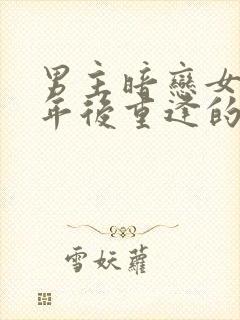 男主暗戀女
年後重逢的
雪妖蘿